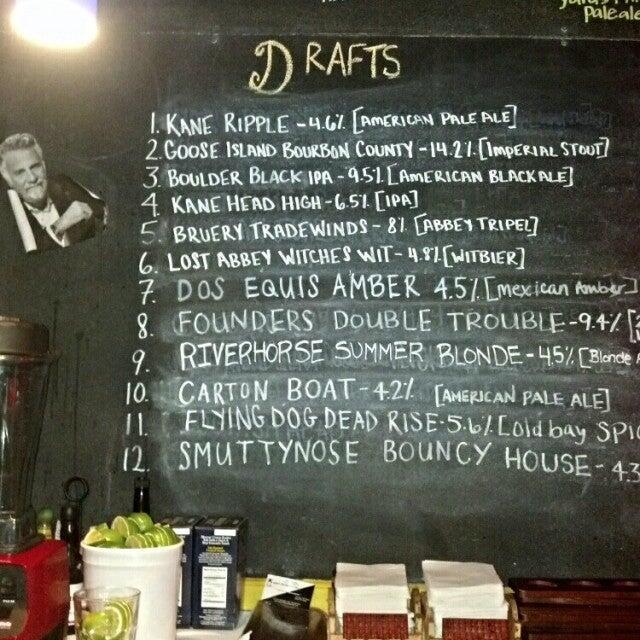 paleale
DRAFTS
1. KANE RIPPLE - 4.6% [AMERICAN PALE ALE]
2. GOOSE ISLAND BOURBON COUNTY - 14.2% [IMPERIAL STOUT]
3. BOULDER BLACK IPA - 9.5% [AMERICAN BLACK ALE]
4. KANE HEAD HIGH - 6.5% [IPA]
5. BRUERY TRADEWINDS - 8% [ABBEY TRIPEL]
6. LOST ABBEY WITCHES WIT - 4.8% [WITBIER]
7. DOS EQUIS AMBER 4.5% [mexican Amber]
8. FOUNDERS DOUBLE TROUBLE - 9.4% [
9. RIVERHORSE SUMMER BLONDE - 4.5% [Blonde
10. CARTON BOAT - 4.2% [AMERICAN PALE ALE]
11. FLYING DOG DEAD RISE - 5.6% [Old bay SPIC
12. SMUTTYNOSE BOUNCY HOUSE - 4.3